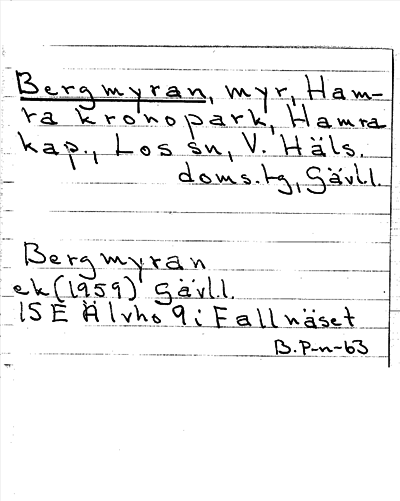 Bergmyran, myr, Ham-
ra kronopark, Hamra
kap., Los sn, V. Häls.
doms.tg, Gävl.l.
Bergmyran
ek (1959) Gävl.l.
ISE Älvho 9i Fallnäset
B.P-n-63